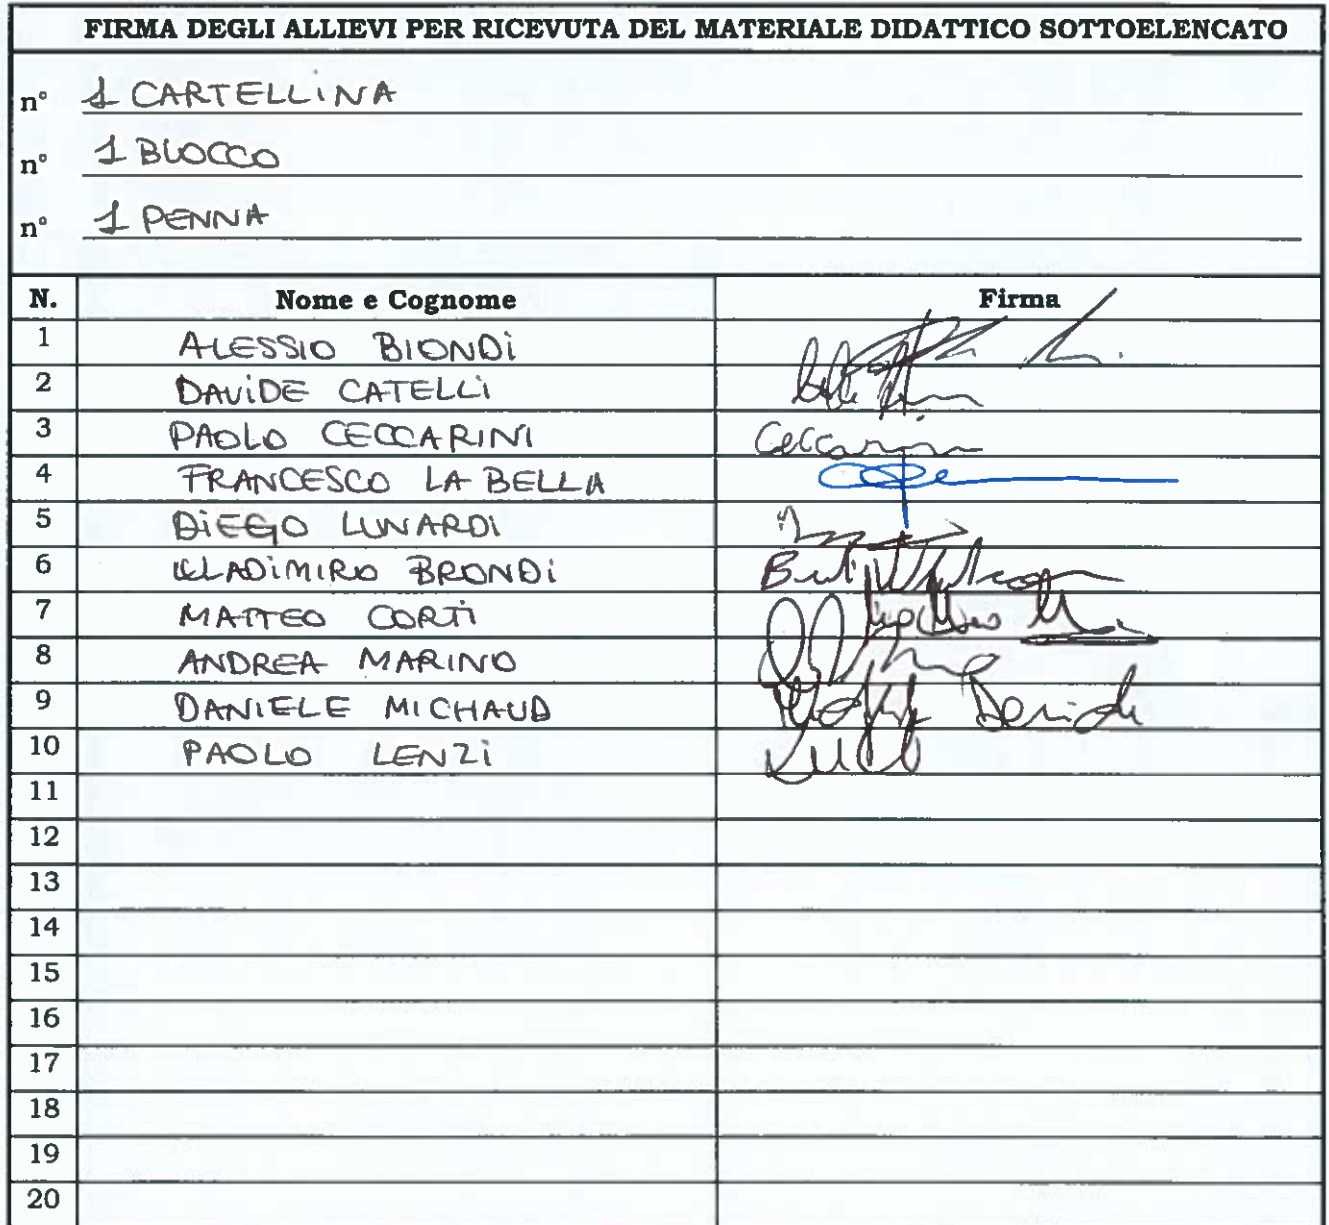 FIRMA DEGLI ALLIEVI PER RICEVUTA DEL MATERIALE DIDATTICO SOTTOELENCATO
n° 1 CARTELLINA
n° 1 BLOCCO
n° 1 PENNA
N. Nome e Cognome Firma
1 ALESSIO BIONDI
2 DAVIDE CATELLI
3 PAOLO CECCARINI Ceccarini
4 FRANCESCO LA BELLA
5 DIEGO LUNARDI
6 VLADIMIRO BRONDI
7 MATTEO CORTI
8 ANDREA MARINO
9 DANIELE MICHAUD
10 PAOLO LENZI
11
12
13
14
15
16
17
18
19
20